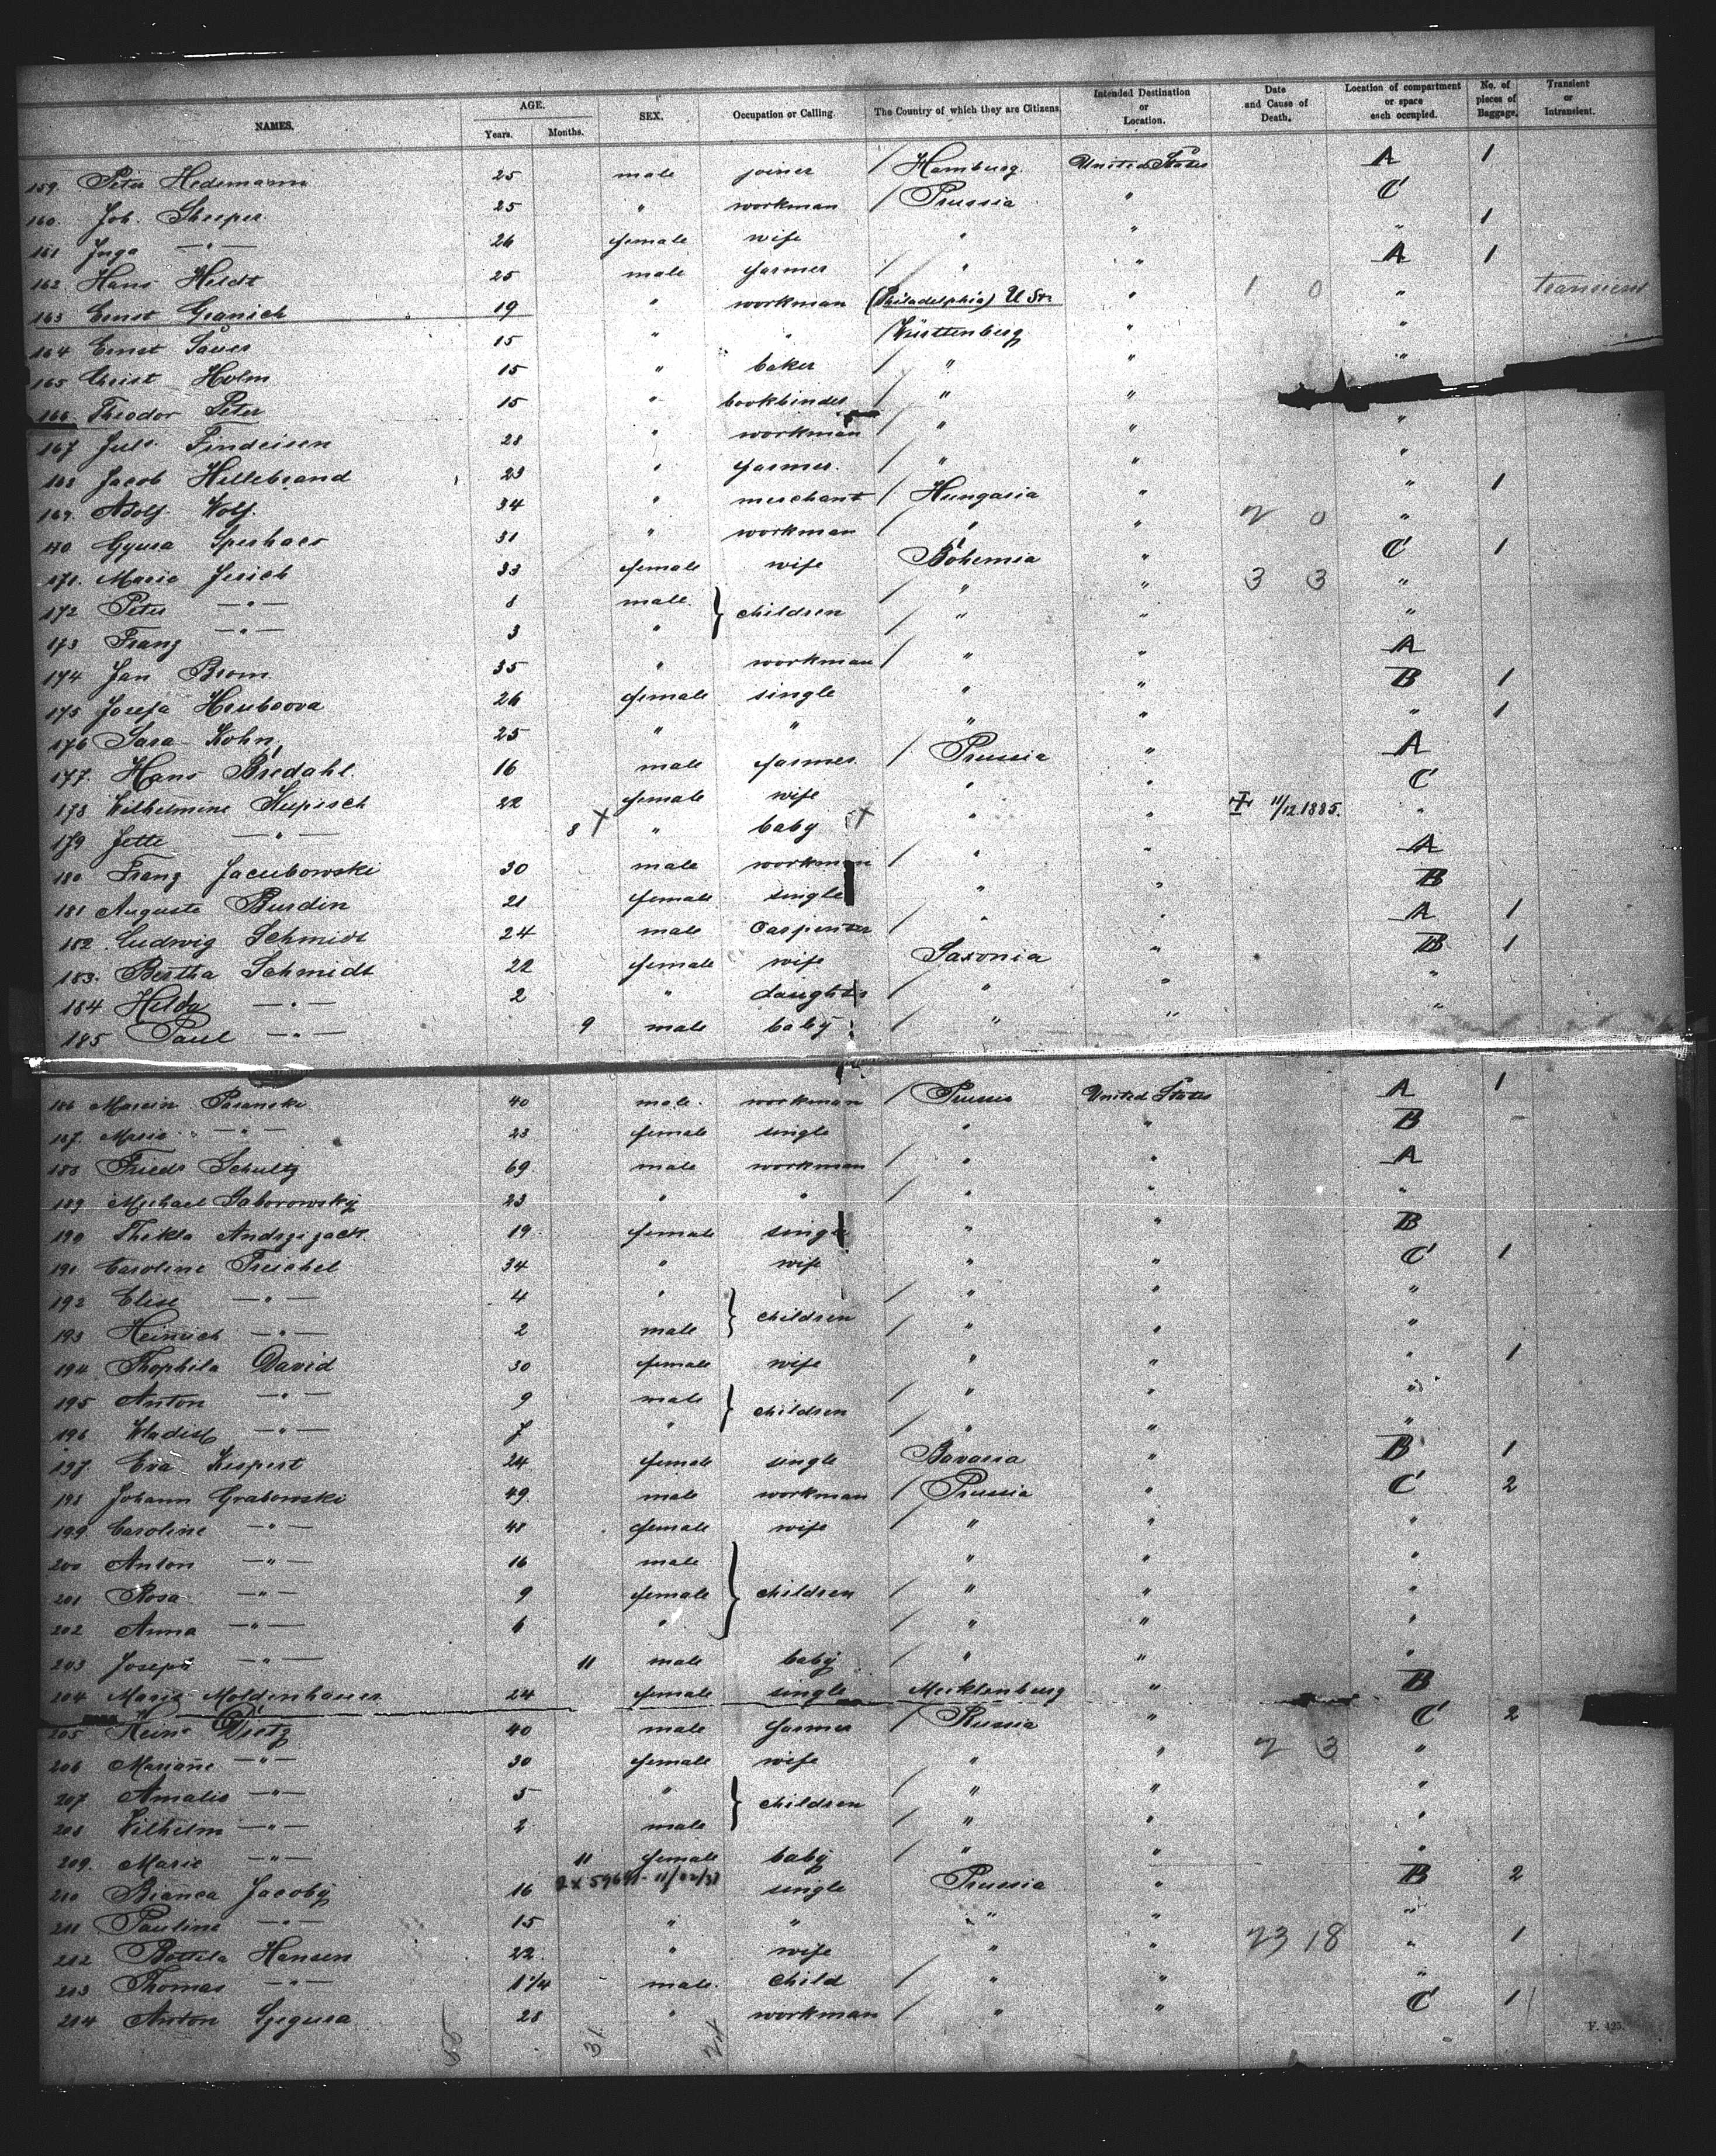 NAMES. AGE. Years. Months. SEX. Occupation or Calling The Country of which they are Citizens Intended Destination or Location. Date and Cause of Death. Location of compartment or space each occupied. No. of pieces of Baggage. Transient or Intransient.
159. Peter Hedemann 25 male joiner / Hamburg United States A 1
160. Joh. Sheeper 25 " workman / Prussia " C
161 Inga —"— 26 female wife " " " 1
162 Hans Heldt 25 male farmer / " " A 1
163 Ernst Granich 19 " workman (Philadelphia) U St. " 1 0 " transient
164 Ernst Sauer 15 " " / Württenberg " "
165 Christ Holm 15 " baker / " " "
166. Theodor Peter 15 " bookbinder / " "
167 Jul. Findeisen 28 " workman / " " "
168 Jacob Hillebrand 23 " farmer. / " " "
169. Adolf Wolf. 34 " merchant / Hungaria " " 1
170 Gyura 31 " workman / " " 2 0 "
171. Marie Jerich 33 female wife Bohemia " C 1
172 Peter —"— 8 male } children / " " 3 3 "
173 Franz —"— 3 " / " " "
174 Jan Brom 35 " workman / " " A
175 Josefa Hrubcova 26 female single " " B 1
176 Sara Kohn 25 " " " " " 1
177. Hans Bredahl. 16 male farmer / Prussia " A
178 Wilhelmine Kupisch 22 female wife " " C
179 Jette —"— 8 X " baby X " " 11/12.1885. "
180 Franz Jacubowski 30 male workman / " " A
181 Auguste Burdin 21 female single " " B
182 Ludwig Schmidt 24 male Carpenter / " " A 1
183. Bertha Schmidt 22 female wife Saxonia " B 1
184 Hilda —"— 2 " daughter / " " "
185 Paul —"— 9 male baby / " " "
186 Marcin Paranski 40 male workman / Prussia United States A 1
187. Marie —"— 23 female single " " B
188 Friedr Schultz 69 male workman / " " A
189 Michael Saborowsky 23 " " / " " "
190 Thekla 19 female single " " B
191 Caroline Treichel 34 " wife " " C 1
192 Elise —"— 4 " } children / " " "
193 Heinrich —"— 2 male / " " "
194 Thophila David 30 female wife " " " 1
195 Anton —"— 9 male } children / " " "
196 Wladisl —"— 7 " / " " "
197 Eva Kispert 24 female single Bavaria " B 1
198 Johann Grabowski 49 male workman / Prussia " C 2
199 Caroline —"— 48 female wife / " " "
200 Anton —"— 16 male } children " " "
201 Rosa —"— 9 female / " " "
202 Anna —"— 6 " / " " "
203 Joseph —"— 11 male baby / " " "
204 Marie Moldenhauer 24 female single Mecklenburg " B
205 Heinr Dietz 40 male farmer / Russia " C 2
206 Mariane —"— 30 female wife " " 2 3 "
207 Amalie —"— 5 " } children / " " "
208 Wilhelm —"— 2 male / " " "
209. Marie —"— 11 female baby / " " "
210 Bianca Jacoby 16 single Prussia " B 2
211 Pauline —"— 15 " " " " "
212 Bottila Hansen 22 " wife " " 23 18 " 1
213 Thomas —"— 1 1/4 male. child / " " "
214 Anton 28 " workman / " " C 1
31 24
F. 425.